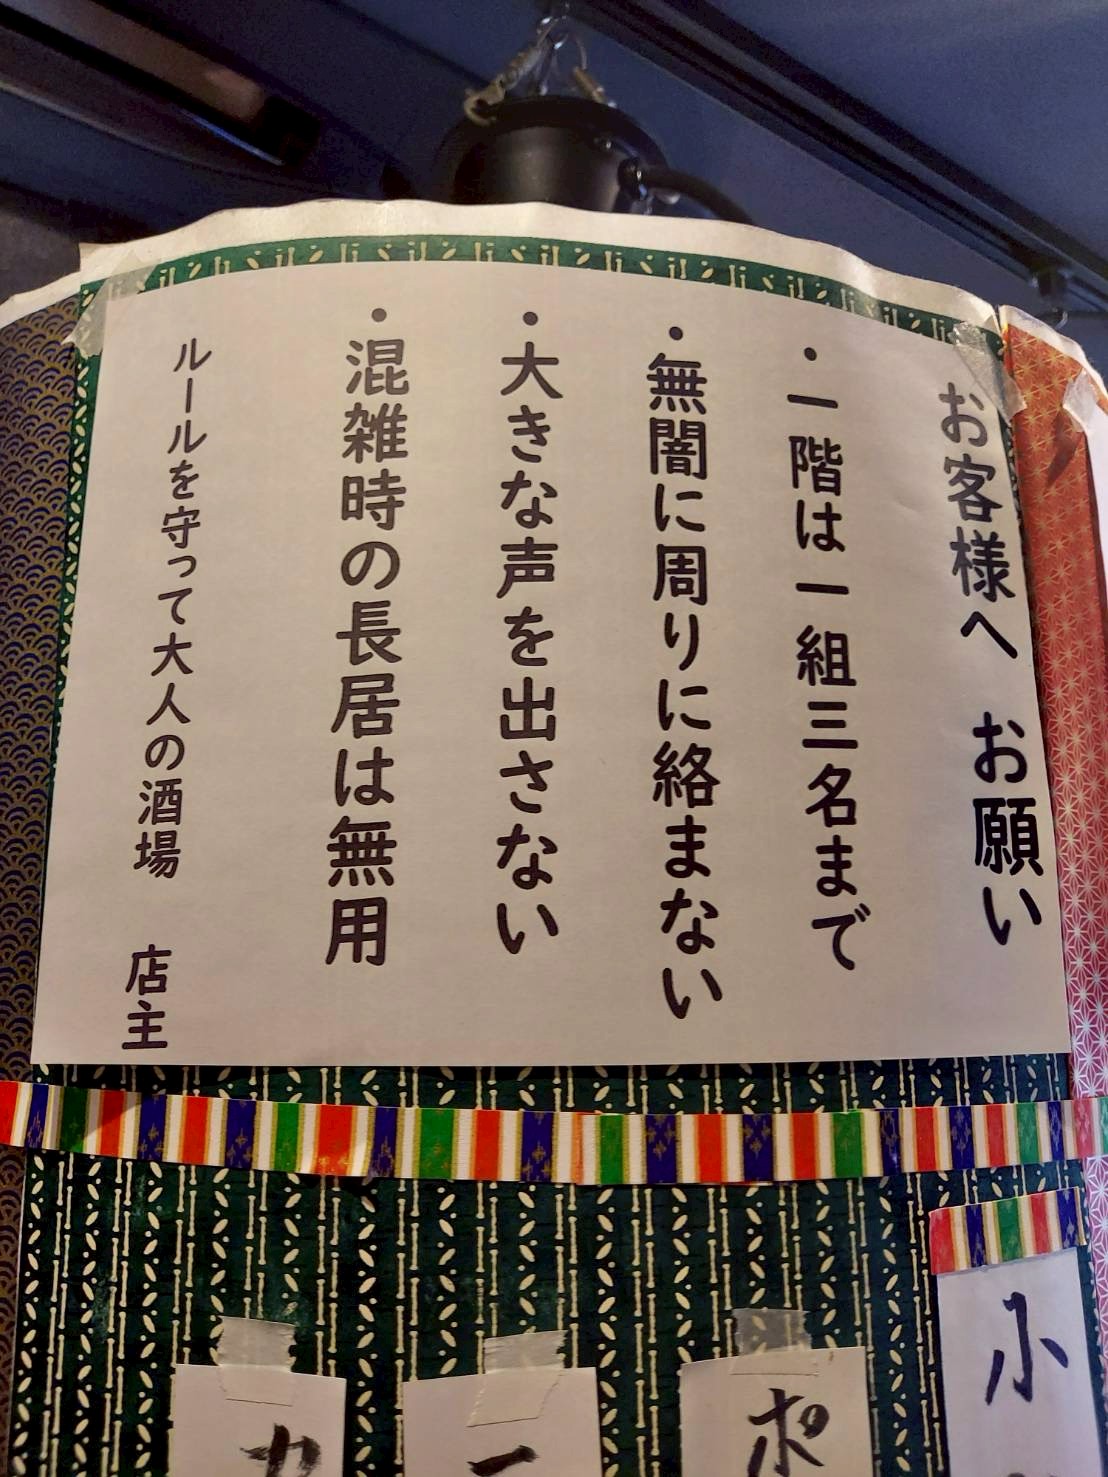 お客様へ お願い
・一階は一組三名まで
・無闇に周りに絡まない
・大きな声を出さない
・混雑時の長居は無用
ルールを守って大人の酒場 店主
小
ポ